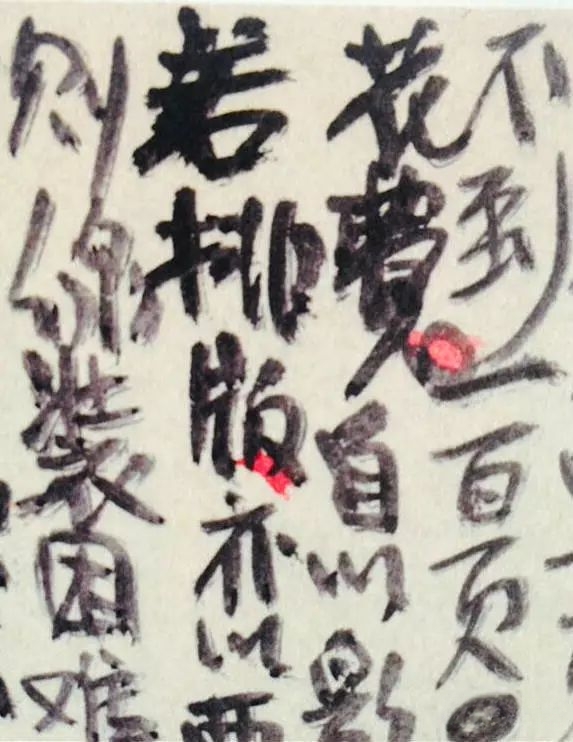 不到一百页。
花費自以影
若排版亦以要
则線装困难